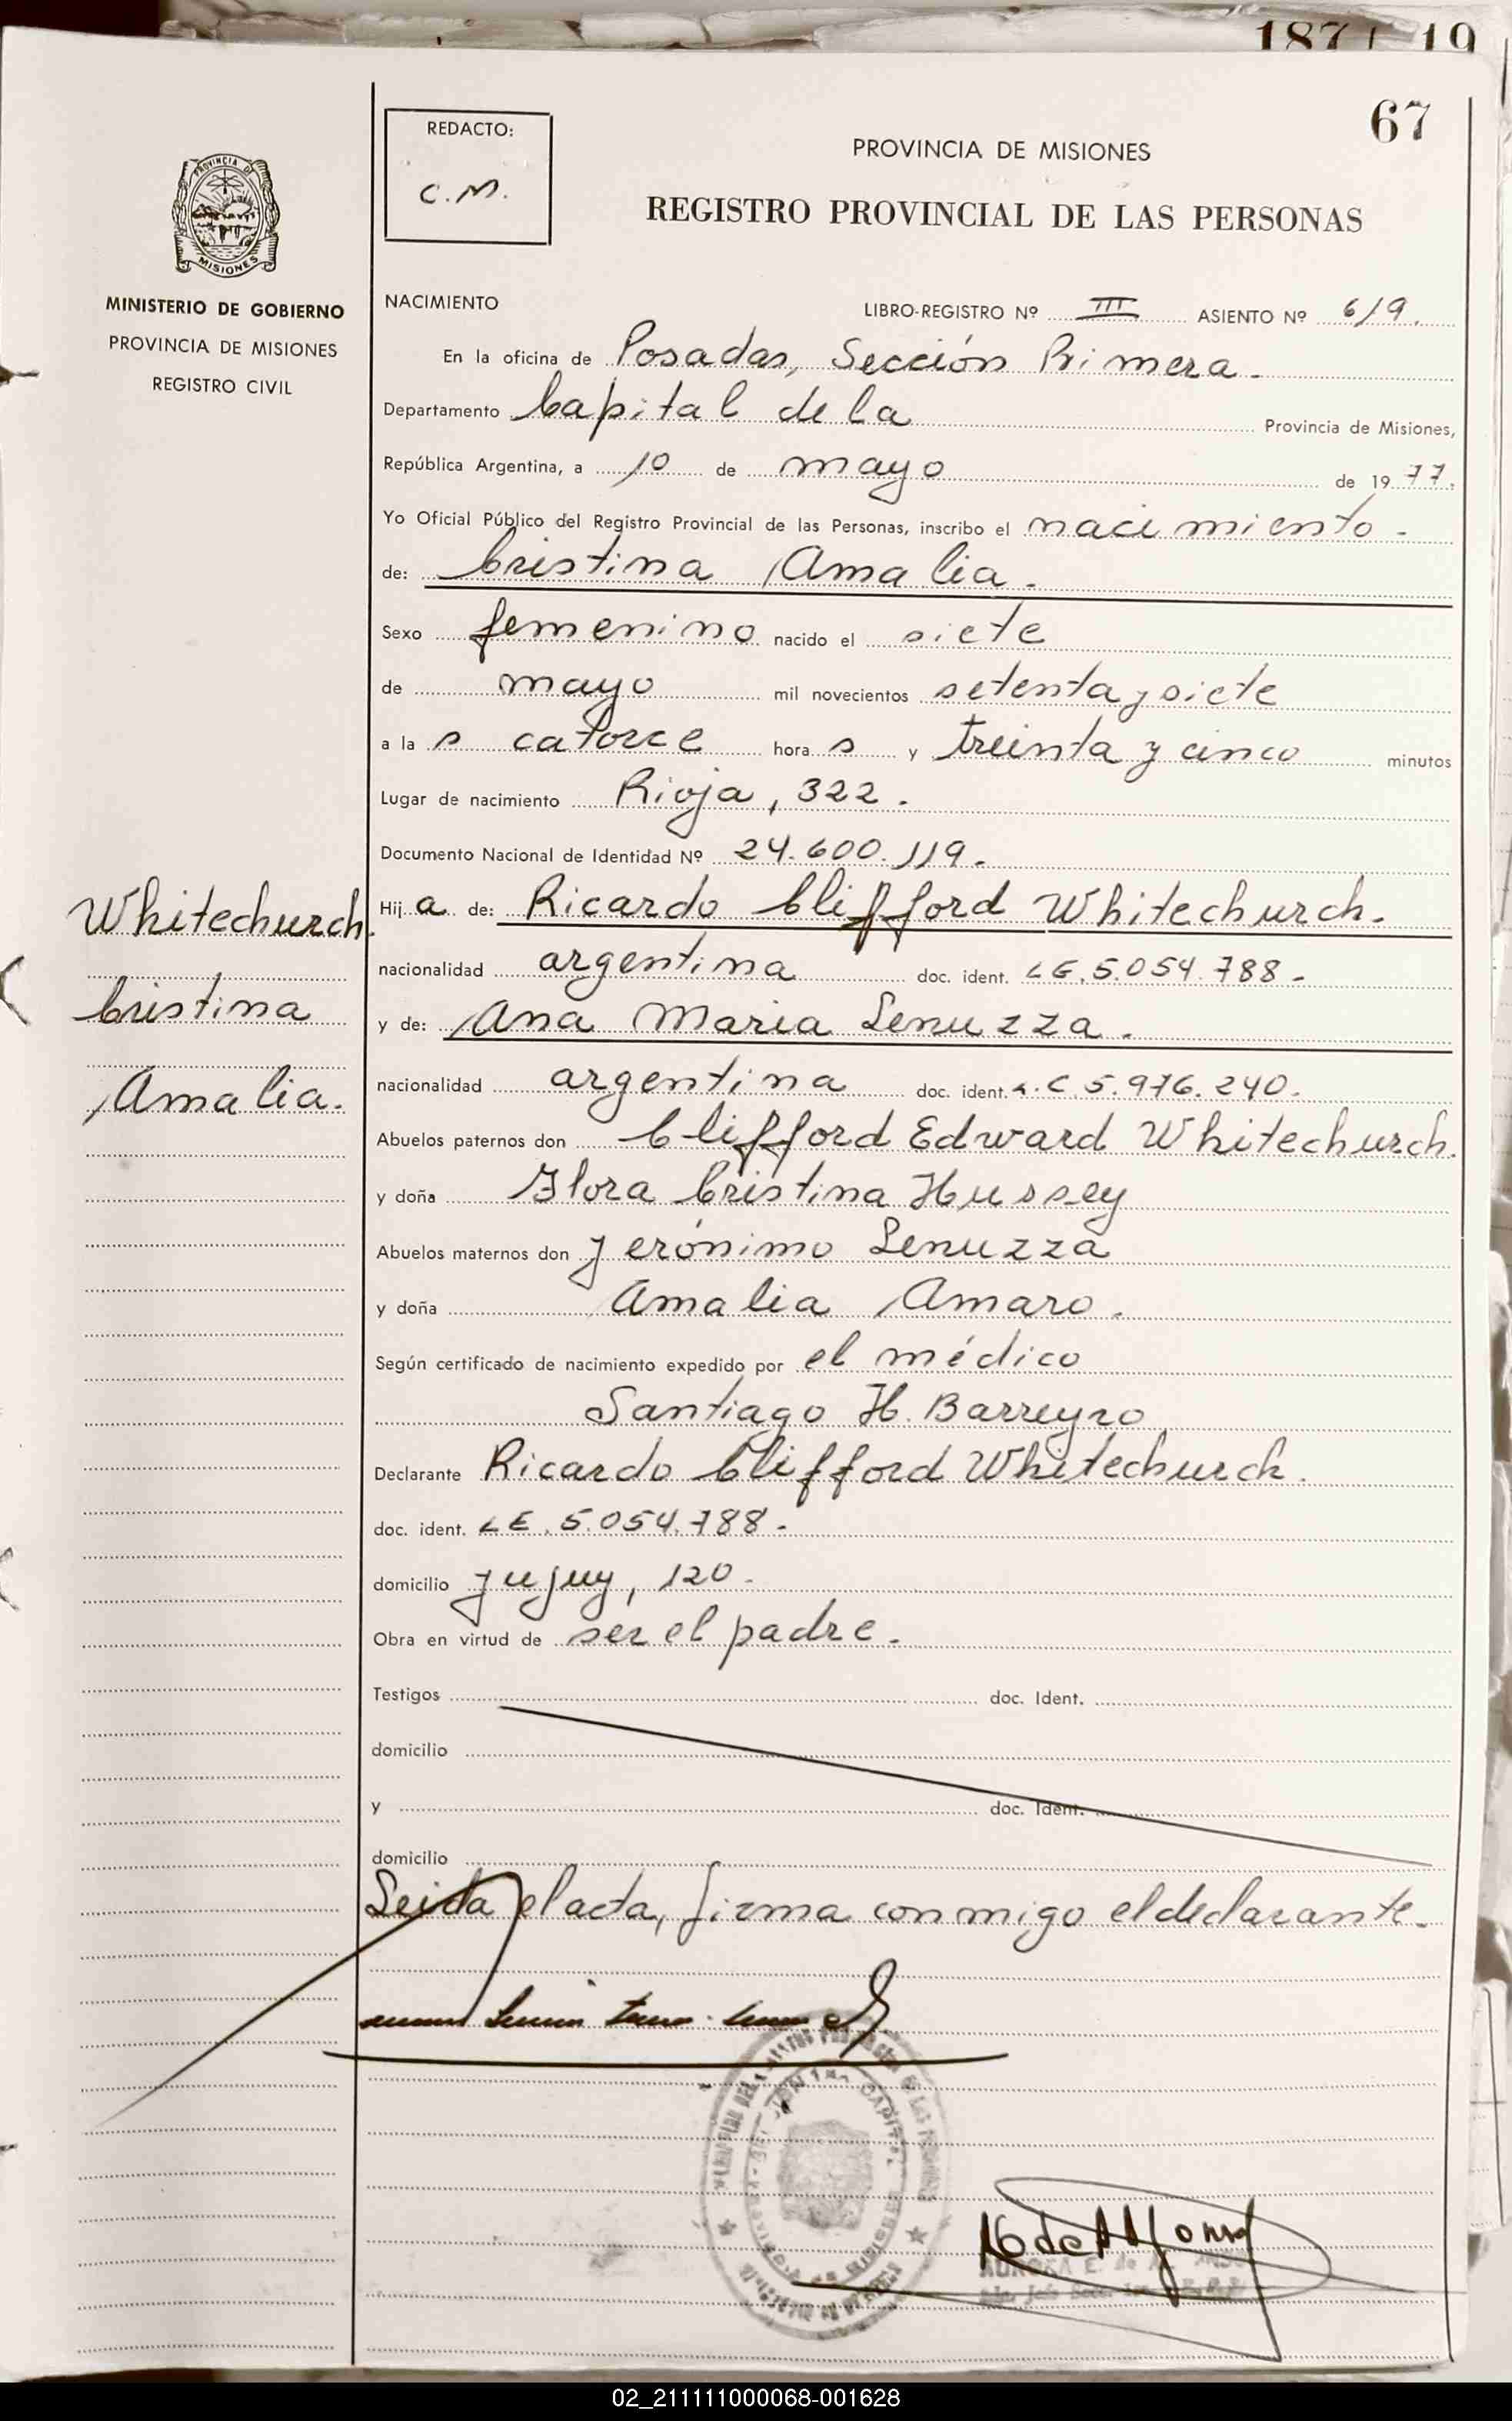 187 19
67
REDACTO:
C.M.
PROVINCIA DE MISIONES
REGISTRO PROVINCIAL DE LAS PERSONAS
PROVINCIA DE
MISIONES
MINISTERIO DE GOBIERNO
PROVINCIA DE MISIONES
REGISTRO CIVIL
NACIMIENTO LIBRO-REGISTRO Nº III ASIENTO Nº 619.
En la oficina de Posadas, Sección Primera.
Departamento Capital de la Provincia de Misiones,
República Argentina, a 10 de mayo de 19 77.
Yo Oficial Público del Registro Provincial de las Personas, inscribo el nacimiento -
de: Cristina Amalia.
Sexo femenino nacido el siete
de mayo mil novecientos setenta y siete
a la s catorce hora s y treinta y cinco minutos
Lugar de nacimiento Rioja, 322.
Documento Nacional de Identidad Nº 24.600.119.
Whitechurch
Cristina
Amalia.
Hij a de: Ricardo Clifford Whitechurch.
nacionalidad argentina doc. ident. LE. 5.054.788-
y de: Ana Maria Lenuzza.
nacionalidad argentina doc. ident. L.C 5.976.240.
Abuelos paternos don Clifford Edward Whitechurch.
y doña Flora Cristina Hussey
Abuelos maternos don Jerónimo Lenuzza
y doña Amalia Amaro.
Según certificado de nacimiento expedido por el médico
Santiago H. Barreyro
Declarante Ricardo Clifford Whitechurch.
doc. ident. LE. 5.054.788-
domicilio Jujuy, 120.
Obra en virtud de ser el padre.
Testigos doc. Ident.
domicilio
y doc. Ident.
domicilio
Leida el acta, firma conmigo el declarante.
AURORA E. de
02_211111000068-001628